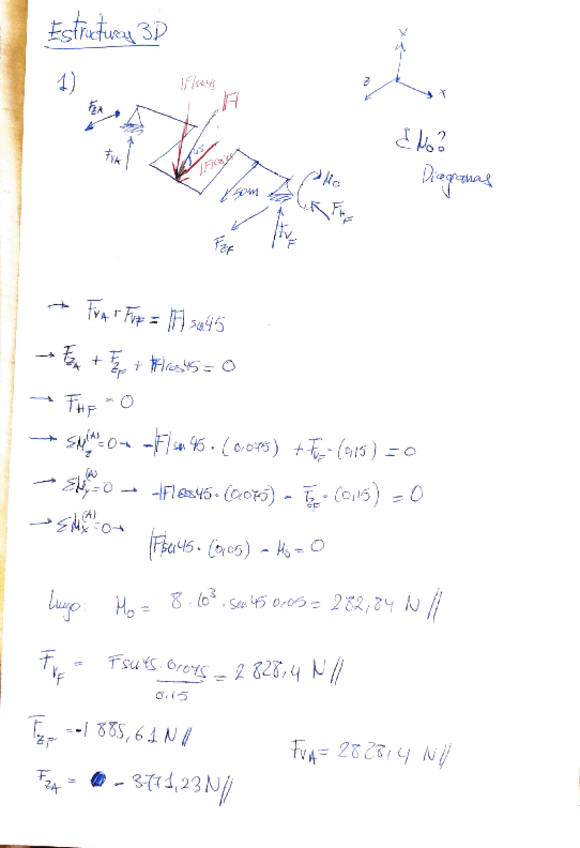 Estructuras 3D
1)
|F|sen45
|F|
Y
Z
X
F_ZA
45
F_VA
|F|cos45
50m
M_0
F_HF
F_ZF
F_VF
¿M_0?
Diagramas
→ F_VA + F_VF = |F| sen45
→ F_ZA + F_ZF + |F|cos45 = 0
→ F_HF = 0
→ ΣM_z^(A)=0 → -|F|sen45·(0,075) + F_VF·(0,15) = 0
→ ΣM_y^(A)=0 → -|F|cos45·(0,075) - F_ZF·(0,15) = 0
→ ΣM_x^(A)=0→
|F|sen45·(0,05) - M_0 = 0
Luego: M_0 = 8·10³·sen45·0,05 = 282,84 N//
F_VF = Fsen45·0,075 / 0.15 = 2828,4 N//
F_ZF = -1885,61 N//
F_VA = 2828,4 N//
F_ZA = -3771,23 N//